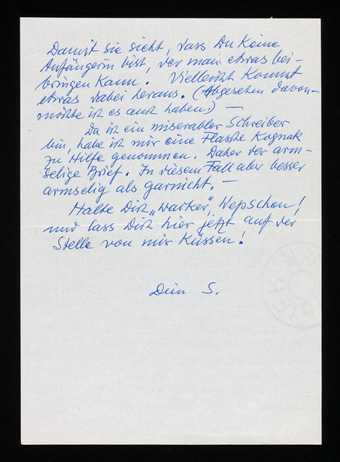 Damit sie sieht, dass Du keine
Anfängerin bist, der man etwas bei-
bringen kann. Vielleicht kommt
etwas dabei heraus. (Abgesehen davon -
möchte ich es auch haben) —
Da ich ein miserabler Schreiber
bin, habe ich mir eine Flasche Kognak
zu Hilfe genommen. Daher der arm-
selige Brief. In diesem Fall aber besser
armselig als garnicht. —
Halte Dich „wacker", Wepschen!
und lass Dich hier jetzt auf der
Stelle von mir küssen!
Dein S.